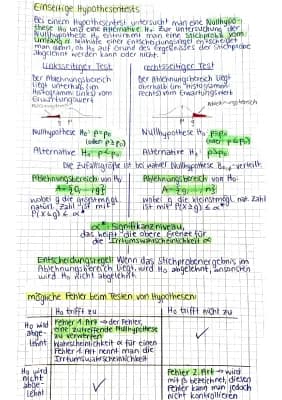 Einseitige Hypothesentests
Bei einem Hypothesentest untersucht man eine Nullhypo-
these H0 und eine Alternative H1. Zur Untersuchung der
Nullhypothese H0 entnimmt man eine Stichprobe vom
Umfang n. Mithilfe einer Entscheidungsregel entscheidet
man dann, ob H0 auf Grund des Ergebnisses der Stichprobe
abgelehnt werden kann oder nicht.
Linksseitiger Test
Der Ablehnungsbereich
liegt unterhalb (im
Histogramm links) vom
Erwartungswert
rechtsseitiger Test
Der Ablehnungsbereich liegt
oberhalb (im Histogramm
rechts) vom Erwartungswert
Ablehnungsbereich
g μ
μ g
Nullhypothese H0: p=p0
(oder p≥p0)
Alternative H1: p<p0
Nullhypothese H0: p=p0
(oder p≤p0)
Alternative H1: p>p0
Die Zufallsgröße ist bei wahrer Nullhypothese verteilt.
Ablehnungsbereich von H0:
A={0,...,g}
wobei g die größtmögl.
natürl. Zahl ist mit
P(X≤g) ≤ α*
Ablehnungsbereich von H0:
A={g,...,n}
wobei g die kleinstmögl. nat. Zahl
ist mit P(X≥g) ≤ α*
α* Signifikanzniveau,
das heißt die obere Grenze für
die Irrtumswahrscheinlichkeit α
Entscheidungsregel: Wenn das Stichprobenergebnis im
Ablehnungsbereich liegt, wird H0 abgelehnt, ansonsten
wird H0 nicht abgelehnt.
mögliche Fehler beim Testen von Hypothesen:
H0 trifft zu
H0 trifft nicht zu
H0 wird
abge-
lehnt
Fehler 1. Art → der Fehler,
eine zutreffende Nullhypothese
zu verwerfen
Wahrscheinlichkeit α für einen
Fehler 1. Art nennt man die
Irrtumswahrscheinlichkeit
✓
H0 wird
nicht
abge-
lehnt
✓
Fehler 2. Art → wird
mit β bezeichnet, diesen
Fehler kann man jedoch
nicht kontrollieren